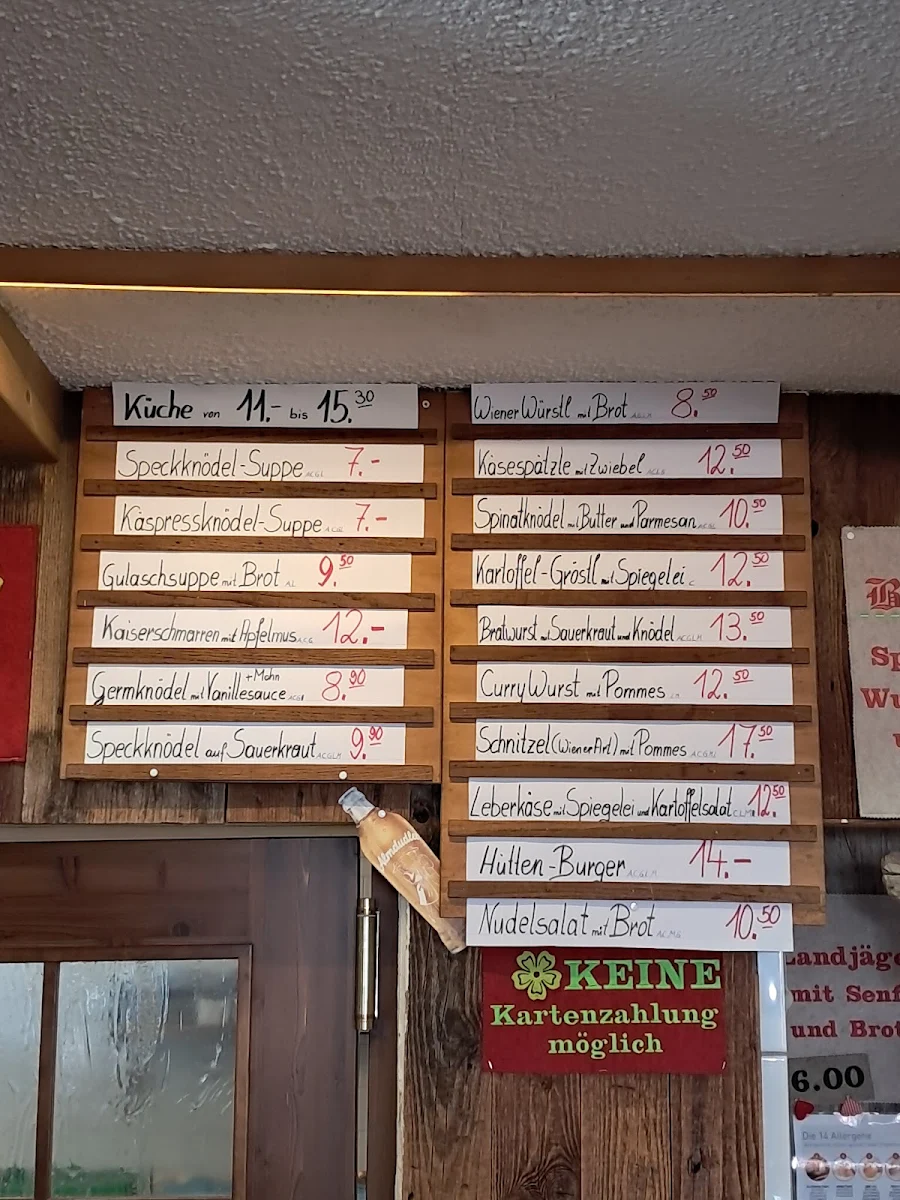 Küche von 11.- bis 15.30
Speckknödel-Suppe A.C.G.L 7.-
Käspressknödel-Suppe A.C.G. 7.-
Gulaschsuppe mit Brot A.L 9.50
Kaiserschmarren mit Apfelmus A.C.G. 12.-
Germknödel mit Vanillesauce +Mohn A.C.G. 8.90
Speckknödel auf Sauerkraut A.C.G.L.M 9.90
Wiener Würstl mit Brot A.G.L.M 8.50
Käsespätzle mit Zwiebel A.C.L.G 12.50
Spinatknödel mit Butter und Parmesan A.C.G. 10.50
Kartoffel-Gröstl mit Spiegelei C 12.50
Bratwurst mit Sauerkraut und Knödel A.C.G.L.M 13.50
CurryWurst mit Pommes 12.50
Schnitzel (Wiener Art) mit Pommes A.C.G.M. 17.50
Leberkäse mit Spiegelei und Kartoffelsalat C.L.M 12.50
Hütten-Burger A.C.G.L.M 14.-
Nudelsalat mit Brot A.C.M.G 10.50
Almdudler
KEINE
Kartenzahlung
möglich
Landjäge
mit Senf
und Brot
6.00
Die 14 Allergene
B
Sp
Wu
u